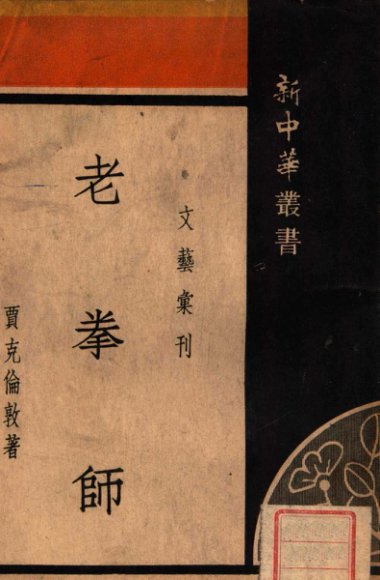 新中華叢書
文藝彙刊
老拳師
賈克倫敦著